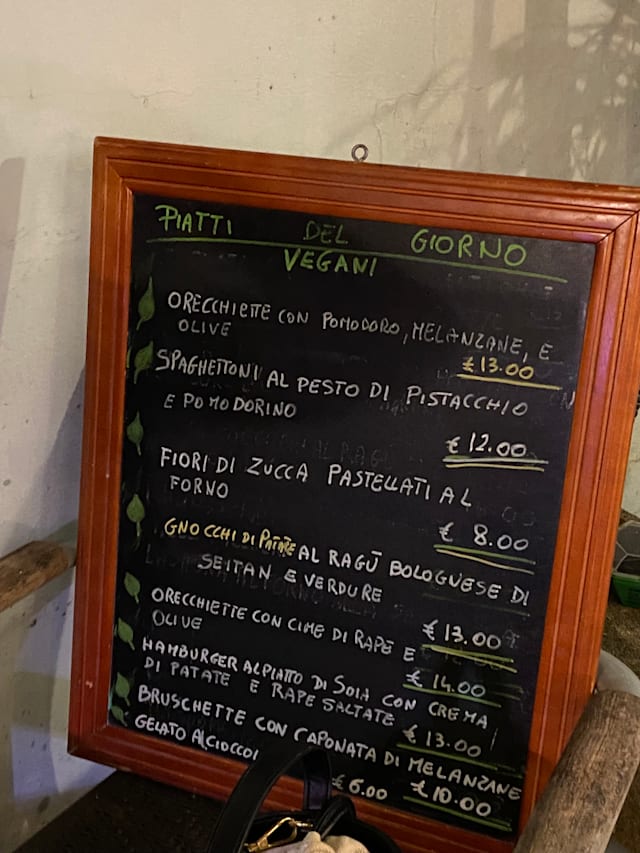 PIATTI DEL GIORNO
VEGANI
ORECCHIETTE CON POMODORO, MELANZANE, E
OLIVE
€ 13.00
SPAGHETTONI AL PESTO DI PISTACCHIO
E POMODORINO
€ 12.00
FIORI DI ZUCCA PASTELLATI AL
FORNO
€ 8.00
GNOCCHI DI PATATE AL RAGÙ BOLOGNESE DI
SEITAN E VERDURE
€ 13.00
ORECCHIETTE CON CIME DI RAPE E
OLIVE
€ 14.00
HAMBURGER AL PIATTO DI SOIA CON CREMA
DI PATATE E RAPE SALTATE
€ 13.00
BRUSCHETTE CON CAPONATA DI MELANZANE
€ 10.00
GELATO AL
€ 6.00